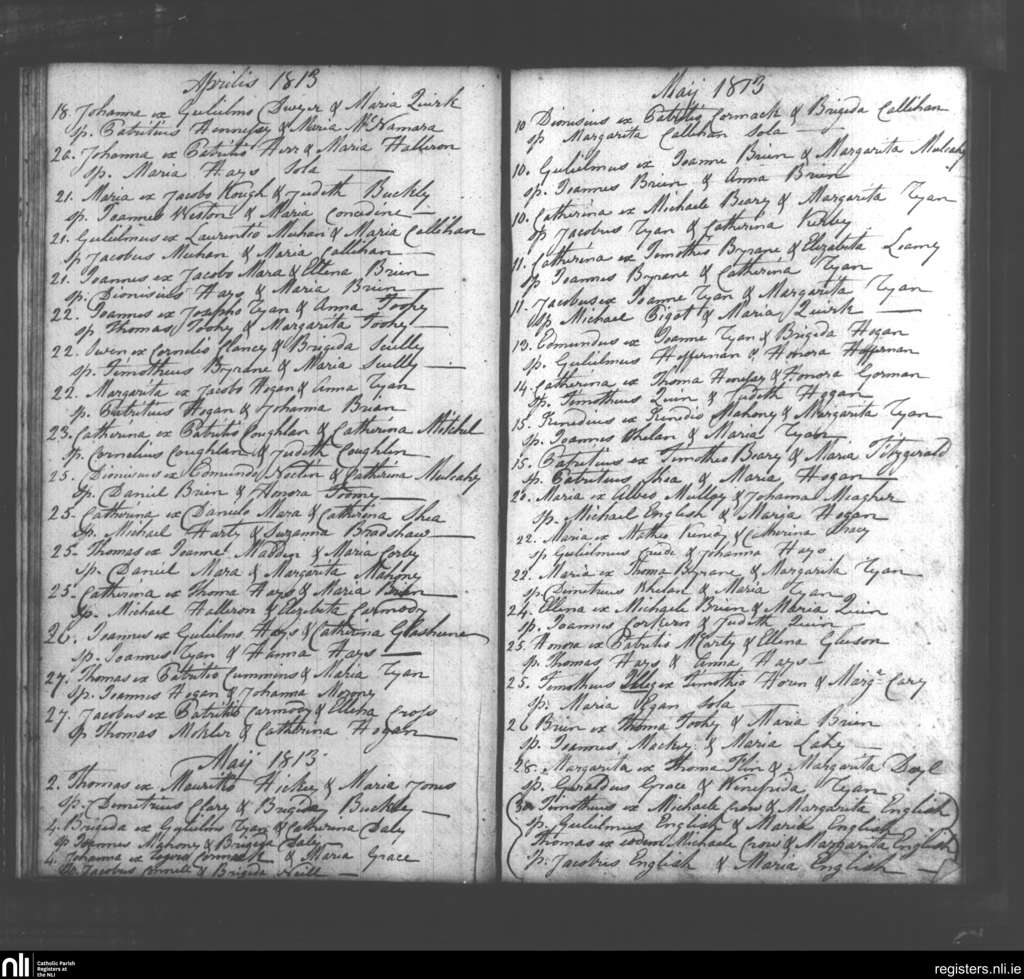 Aprilis 1813
18. Johanna ex Gulielmo Dwyer & Maria Quirk
sp. Patritius Hennesay & Maria McNamara
20. Johanna ex Patritio Herr & Maria Halleron
sp. Maria Hays Sola
21. Maria ex Jacobo Kough & Judith Buckly
sp. Joannes Weston & Maria Concedine
21. Gulielmus ex Laurentio Mehan & Maria Callihan
sp Jacobus Mehan & Maria Callihan
21. Joannes ex Jacobo Mara & Ellena Brien
sp. Dionisius Hays & Maria Brien
22. Joannes ex Josepho Ryan & Anna Toohy
sp Thomas Toohy & Margarita Toohy
22. Owen ex Cornelio Clancy & Brigida Scully
sp. Timotheus Bryrane & Maria Scully
22. Margarita ex Jacobo Hogan & Anna Ryan
sp. Patritius Hogan & Johanna Brian
23. Catherina ex Patritio Coughlan & Catherina Mitchel
sp. Cornelius Coughlan & Judith Coughlin
25. Dionisius ex Edmundo Noctin & Catherina Mulcahy
sp. Daniel Brien & Honora Toomy
25. Catherina ex Danielo Mara & Catherina Shea
sp. Michael Harty & Suzanna Bradshaw
25. Thomas ex Joanne Madden & Maria Corby
sp. Daniel Mara & Margarita Mahony
25. Catherina ex Thoma Hays & Maria Brien
sp. Michael Halleron & Elizabeta Carmody
26. Joannes ex Gulielmo Hays & Catherina Glasheene
sp. Joannes Ryan & Hanna Hays
27. Thomas ex Patritio Cummins & Maria Ryan
sp. Joannes Hogan & Johanna
27. Jacobus ex Patritio Carmody & Ellena Cross
sp Thomas Meklor & Catherina Hogan
Maij 1813
2. Thomas ex Mauritio Hickey & Maria Jones
sp. Dimitrius Clary & Brigida Buckley
4. Brigida ex Gulielmo Ryan & Catherina Daly
sp Joannes Mahony & Brigida Daly
4. Johanna ex Cormack & Maria Grace
sp. Jacobus & Brigida Neill
Maij 1813
10 Dionisius ex Patritio Cormack & Brigida Callihan
sp Margarita Callihan Sola
10. Gulielmus ex Joanne Brien & Margarita Mulcahy
sp. Joannes Brien & Anna Brien
10. Catherina ex Michaele Beary & Margarita Ryan
sp Jacobus Ryan & Catherina Kirby
11. Catherina ex Timothio Bryrane & Elizabeta Leamy
sp Joannes Bryrane & Catherina Ryan
11. Jacobus ex Joanne Ryan & Margarita Ryan
sp Michael Pigot & Maria Quirk
13. Edmundus ex Joanne Ryan & Brigida Hogan
sp. Gulielmus Heffernan & Honora Heffernan
14. Catherina ex Thoma Henesay & Honora Gorman
sp. Timotheus Quin & Judith Hogan
15. Kinedius ex Kinedio Mahony & Margarita Ryan
sp. Joannes Phelan & Maria Ryan
15. Patritius ex Timothio Beary & Maria Fitzgerald
sp. Patritius Shea & Maria Hogan
20. Maria ex Albeo Mulloy & Johanna Meagher
sp. Michael English & Maria Hogan
22. Maria ex Matheo Kinedy & Catherina
sp Gulielmus & Johanna Hays
22. Maria ex Thoma Bryrane & Margarita Ryan
sp. Dimitrius Phelan & Maria Ryan
24. Ellena ex Michaele Brien & Maria Quin
sp. Joannes Corkern & Judith Quin
25. Honora ex Patritio McCarty & Ellena Gleeson
sp. Thomas Hays & Anna Hays
25. Timotheus Illeg ex Timothio Horen & Marga Cary
sp. Maria Sola
26 Brien ex Thoma Toohy & Maria Brien
sp. Joannes Mackey & Maria Lahy
28. Margarita ex Thoma & Margarita Doyl
sp. Geraldus Grace & Winefrida Ryan
30. Timotheus ex Michaele Crow & Margarita English
sp. Gulielmus English & Maria English
Thomas ex eodem Michaele Crow & Margarita English
sp. Jacobus English & Maria English
nli Catholic Parish
Registers at
the NLI
registers.nli.ie